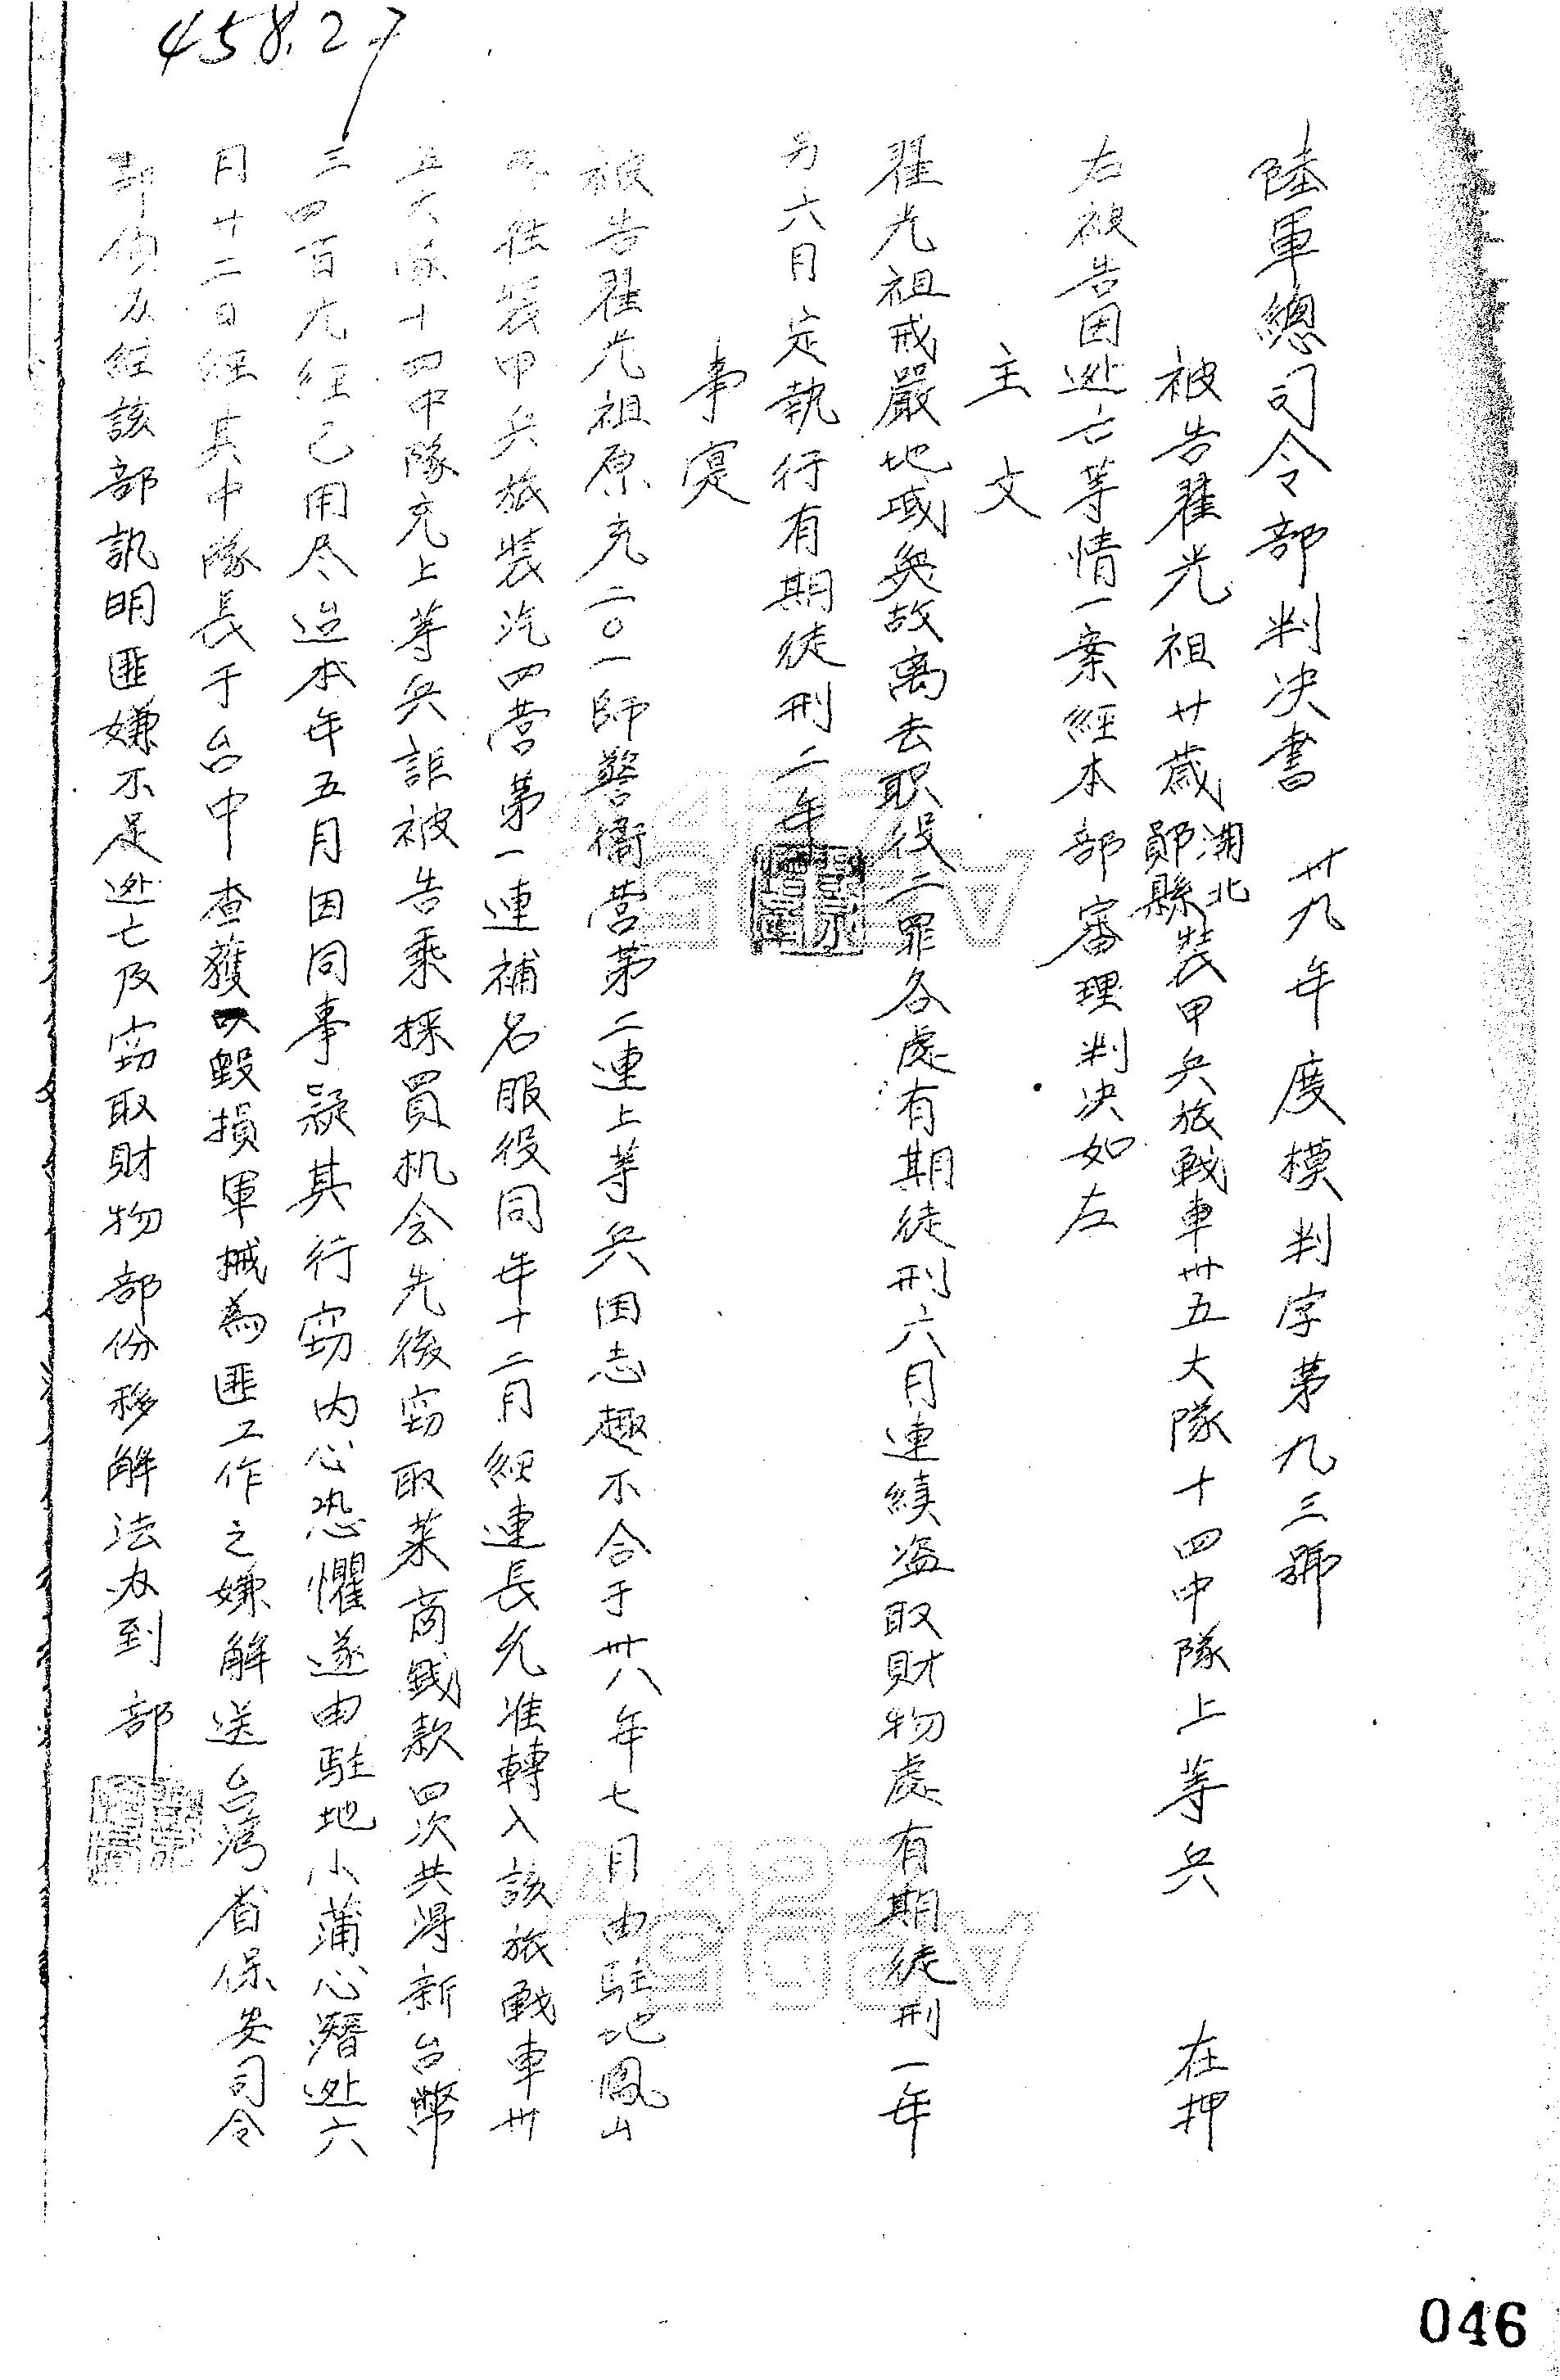 458.27
陸軍總司令部判决書 卅九年度模判字第九三號
被告翟光祖廿歲湖北鄖縣裝甲兵旅戰車卅五大隊十四中隊上等兵 在押
右被告因逃亡等情一案經本部審理判决如左
主文
翟光祖戒嚴地域無故离去职役二罪各處有期徒刑六月連續盜取財物處有期徒刑一年
另六月定執行有期徒刑二年
事实
被告翟光祖原充二〇一師警衛营第二連上等兵因志趣不合于卅八年七月由駐地鳳山
逃往裝甲兵旅裝汽四营第一連補名服役同年十二月經連長允准轉入該旅戰車卅
五大隊十四中隊充上等兵詎被告乘採買机会先後窃取菜商錢款四次共得新台幣
三四百元經已用尽迨本年五月因同事疑其行窃内心恐懼遂由駐地小蒲心潛逃六
月廿二日經其中隊長于台中查獲以毀損軍械為匪工作之嫌解送台灣省保安司令
部侦办經該部訊明匪嫌不足逃亡及窃取財物部份移解法办到部
046